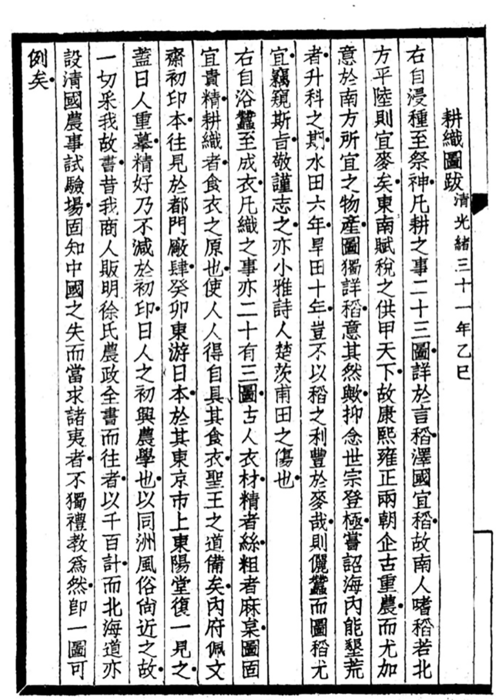 耕織圖跋清光緒三十一年乙巳
右自浸種至祭神凡耕之事二十三圖詳於言稻澤國宜稻故南人嗜稻若北
方平陸則宜麥矣東南賦稅之供甲天下故康熙雍正兩朝企古重農而尤加
意於南方所宜之物產圖獨詳稻意其然歟抑念世宗登極嘗詔海內能墾荒
者升科之期水田六年旱田十年豈不以稻之利豐於麥哉則儷蠶而圖稻尤
宜竊窺斯旨敬謹志之亦小雅詩人楚茨甫田之傷也
右自浴蠶至成衣凡織之事亦二十有三圖古人衣材精者絲粗者麻枲圖固
宜貴精耕織者食衣之原也使人人得自具其食衣聖王之道備矣內府佩文
齋初印本往見於都門廠肆癸卯東游日本於其東京市上東陽堂復一見之
蓋日人重摹精好乃不減於初印日人之初興農學也以同洲風俗尙近之故
一切采我故書昔我商人販明徐氏農政全書而往者以千百計而北海道亦
設清國農事試驗場固知中國之失而當求諸夷者不獨禮教爲然卽一圖可
例矣